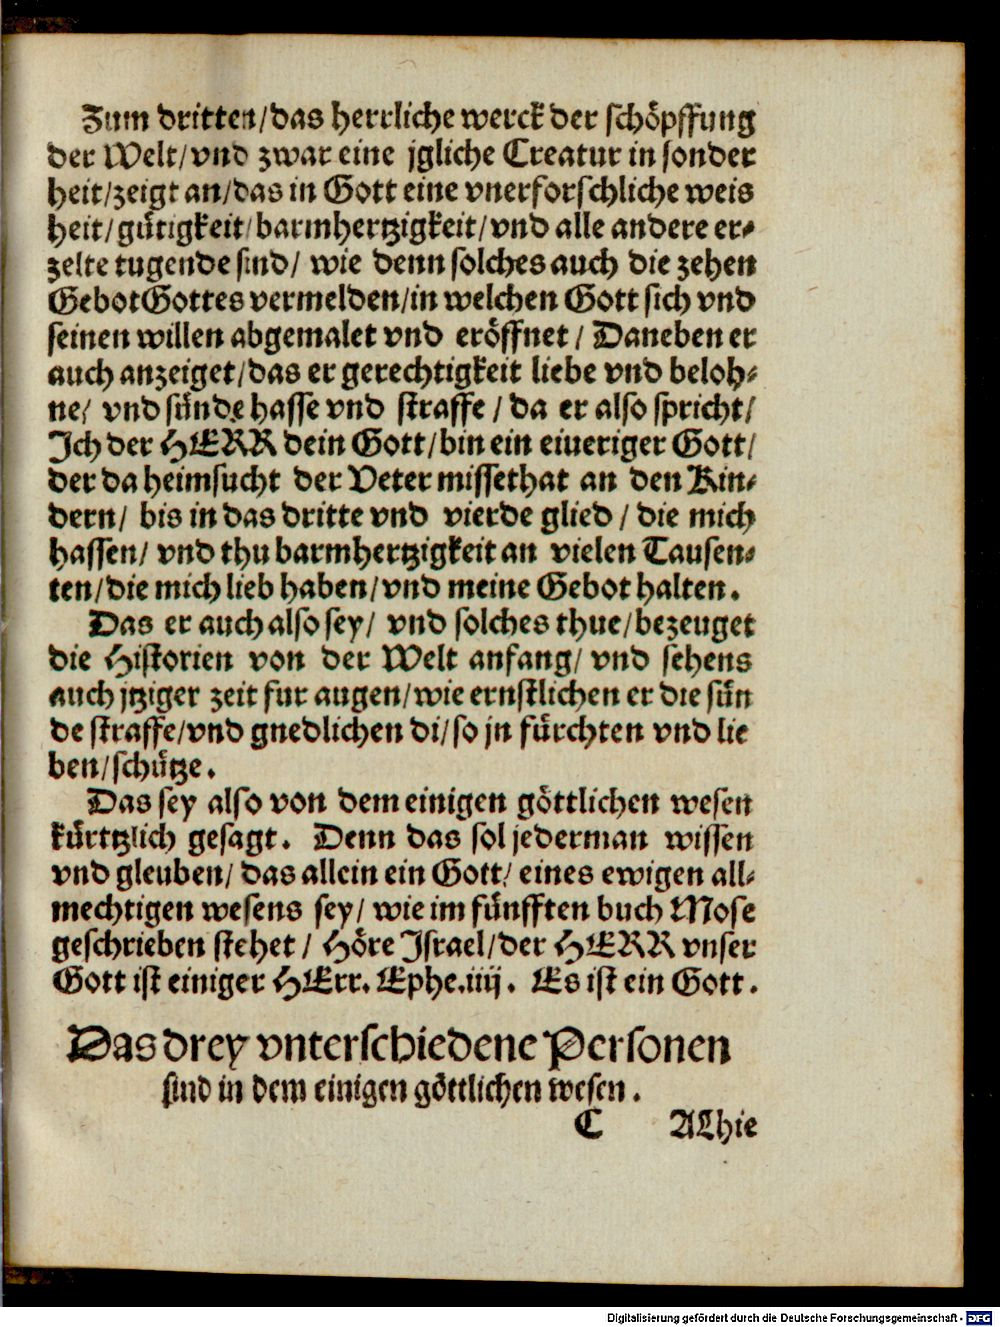 Zum dritten/das herrliche werck der schöpffung
der Welt/vnd zwar eine jgliche Creatur in sonder
heit/zeigt an/das in Gott eine vnerforschliche weis
heit/gütigkeit/barmhertzigkeit/vnd alle andere er⸗
zelte tugende sind/ wie denn solches auch die zehen
Gebot Gottes vermelden/in welchen Gott sich vnd
seinen willen abgemalet vnd eröffnet / Daneben er
auch anzeiget/das er gerechtigkeit liebe vnd beloh⸗
ne/ vnd sünde hasse vnd straffe / da er also spricht/
Ich der HERR dein Gott/bin ein eiueriger Gott/
der da heimsucht der Veter missethat an den Kin⸗
dern/ bis in das dritte vnd vierde glied / die mich
hassen/ vnd thu barmhertzigkeit an vielen Tausen⸗
ten/die mich lieb haben/vnd meine Gebot halten.
Das er auch also sey/ vnd solches thue/bezeuget
die Historien von der Welt anfang/ vnd sehens
auch jtziger zeit fur augen/wie ernstlichen er die sün
de straffe/vnd gnedlichen di/so jn fürchten vnd lie
ben/schütze.
Das sey also von dem einigen göttlichen wesen
kürtzlich gesagt. Denn das sol jederman wissen
vnd gleuben/ das allein ein Gott/ eines ewigen all⸗
mechtigen wesens sey/ wie im fünfften buch Mose
geschrieben stehet / Höre Israel/der HERR vnser
Gott ist einiger HErr. Ephe.iiij. Es ist ein Gott.
Das drey vnterschiedene Personen
sind in dem einigen göttlichen wesen.
C ALhie
Digitalisierung gefördert durch die Deutsche Forschungsgemeinschaft - DFG